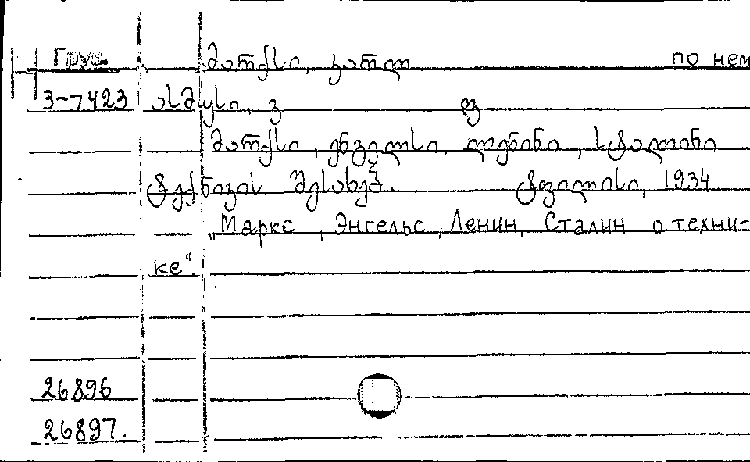 Груз. მარქსი, კარლ по нем
3-7423
მარქსი, ენგელსი, ლენინი, სტალინი
ტექნიკის შესახებ. ტფილისი, 1934
„Маркс, Энгельс, Ленин, Сталин о техни-
ке".
26896
26897.